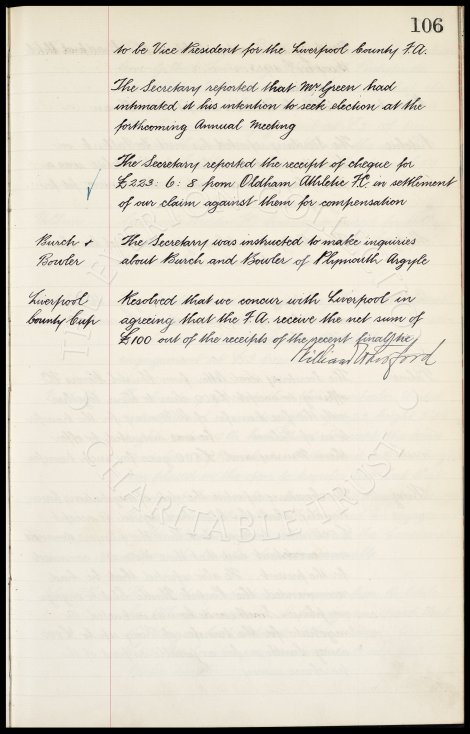 106
to be Vice President for the Liverpool County F.A.
The Secretary reported that Mr Green had
intimated it his intention to seek election at the
forthcoming Annual Meeting
The Secretary reported the receipt of cheque for
£223: 6: 8 from Oldham Athletic F.C. in settlement
of our claim against them for compensation
Burch &
Bowler
The Secretary was instructed to make inquiries
about Burch and Bowler of Plymouth Argyle
Liverpool
County Cup
Resolved that we concur with Liverpool in
agreeing that the F.A. receive the net sum of
£100 out of the receipts of the recent final tie
William
CHARITABLE TRUST